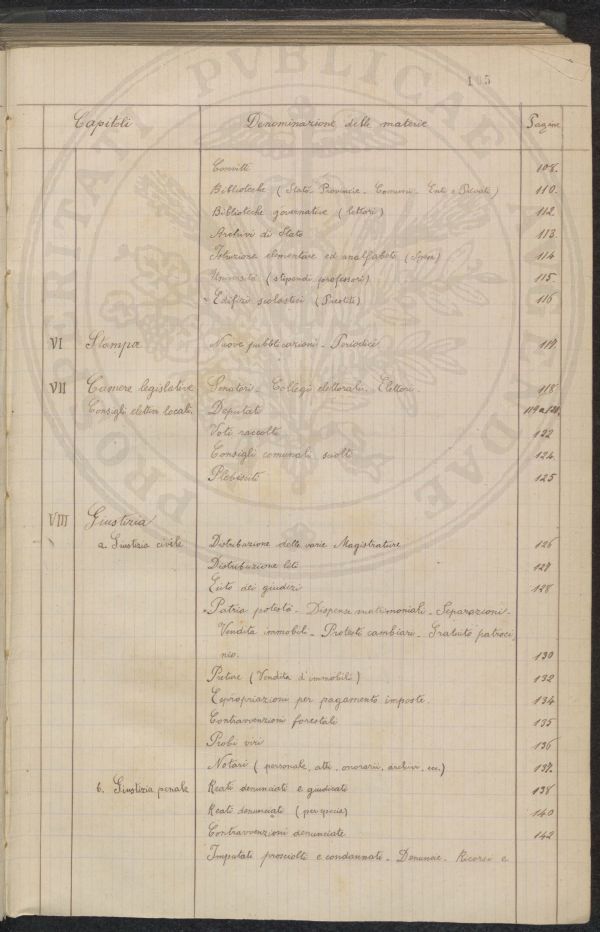 PROSPERITATI PUBLICAE AUGENDAE
105
Capitoli Denominazione delle materie Pagine
Convitti 108.
Biblioteche (Stato. Provincie. Comuni. Enti e Privati) 110.
Biblioteche governative (lettori) 112
Archivi di Stato 113.
Istruzione elementare ed analfabeti (Spese) 114
Università (stipendi professori) 115.
Edifizi scolastici (Prestiti) 116
VI Stampa Nuove pubblicazioni - Periodici 117.
VII Camere legislative Senatori - Collegi elettorali. Elettori. 118
Consigli elettivi locali. Deputati 119 a 121.
Voti raccolti 122
Consigli comunali sciolti 124.
Plebisciti 125
VIII Giustizia
a. Giustizia civile Distribuzione delle varie Magistrature 126
Distribuzione liti 127
Esito dei giudizi 128
Patria potestà - Dispense matrimoniali. Separazioni -
Vendita immobili - Protesti cambiari. Gratuito patroci
nio. 130
Preture (Vendita d'immobili) 132
Espropriazioni per pagamento imposte. 134
Contravvenzioni forestali 135
Probi viri 136
Notari (personale, atti, onorari, archivi, ecc.) 137.
b. Giustizia penale Reati denunciati e giudicati 138
Reati denunciati (per specie) 140
Contravvenzioni denunciate 142
Imputati prosciolti e condannati - Denuncie. Ricorsi e